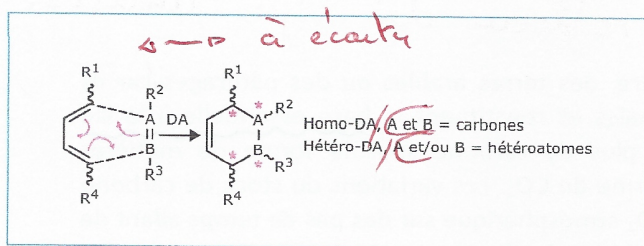 à écarter
R1 R1
R2 R2
A DA A
B B
R3 R3
R4 R4
Homo-DA, A et B = carbones
Hétéro-DA, A et/ou B = hétéroatomes